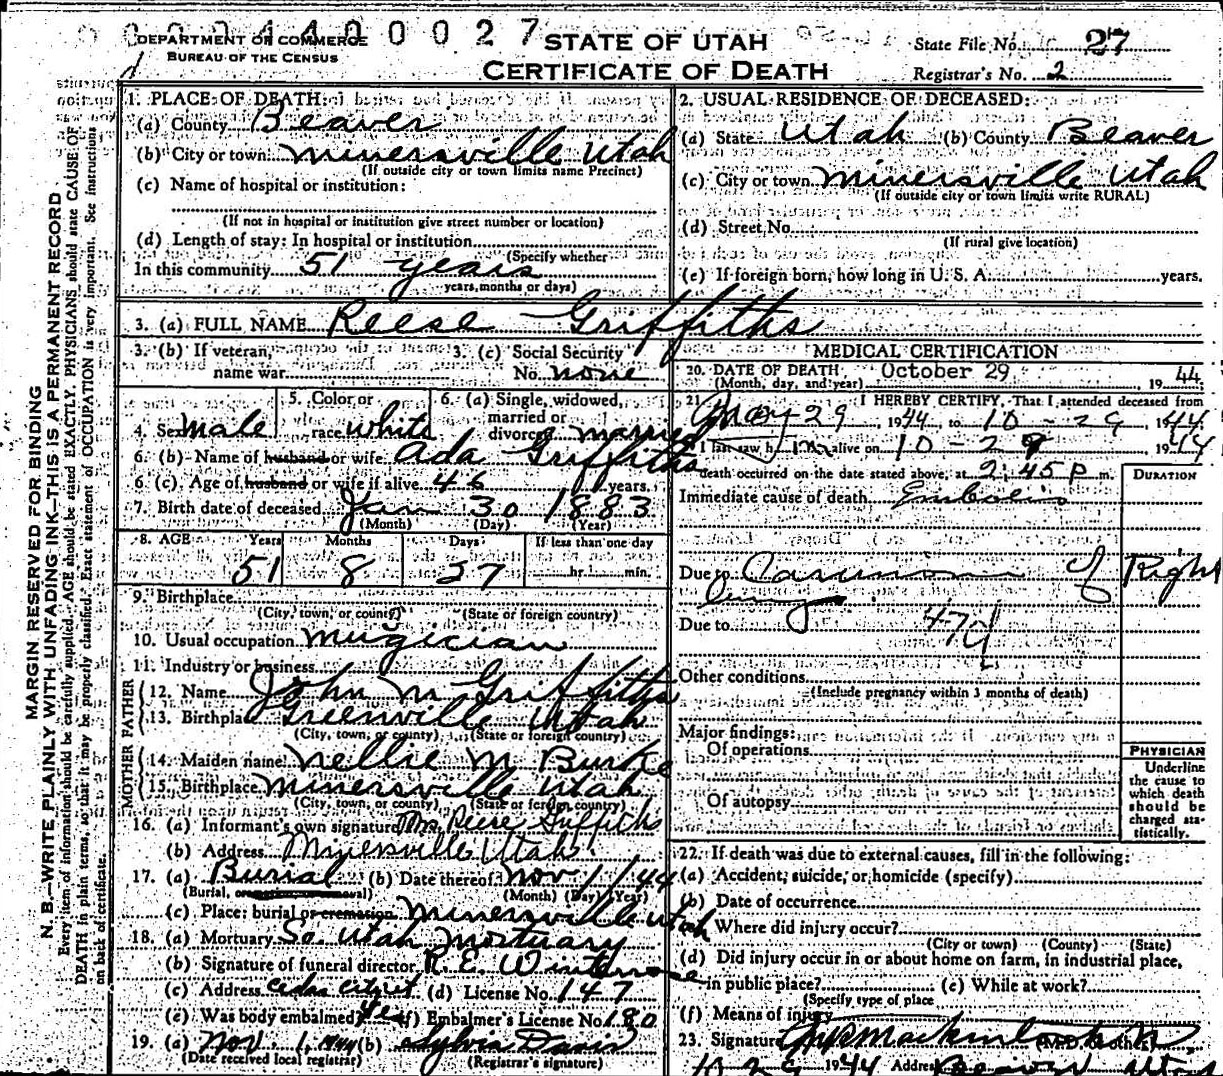 0 0 0 4 4 0 0 0 2 7
DEPARTMENT OF COMMERCE
BUREAU OF THE CENSUS
STATE OF UTAH
CERTIFICATE OF DEATH
State File No. 27
Registrar's No. 2
MARGIN RESERVED FOR BINDING
N. B.—WRITE PLAINLY WITH UNFADING INK—THIS IS A PERMANENT RECORD
Every item of information should be carefully supplied. AGE should be stated EXACTLY. PHYSICIANS should state CAUSE OF
DEATH in plain terms, so that it may be properly classified. Exact statement of OCCUPATION is very important. See instructions
on back of certificate.
1. PLACE OF DEATH:
(a) County Beaver
(b) City or town Minersville Utah
(If outside city or town limits name Precinct)
(c) Name of hospital or institution:
(If not in hospital or institution give street number or location)
(d) Length of stay: In hospital or institution
(Specify whether
In this community 51 years
years, months or days)
2. USUAL RESIDENCE OF DECEASED:
(a) State Utah (b) County Beaver
(c) City or town Minersville Utah
(If outside city or town limits write RURAL)
(d) Street No.
(If rural give location)
(e) If foreign born, how long in U. S. A. years.
3. (a) FULL NAME Reese Griffiths
3. (b) If veteran,
name war
3. (c) Social Security
No. none
4. Sex male
5. Color or
race white
6. (a) Single, widowed,
married or
divorced married
6. (b) Name of husband or wife Ada Griffiths
6. (c) Age of husband or wife if alive 46 years.
7. Birth date of deceased Jan 30 1883
(Month) (Day) (Year)
8. AGE Years Months Days If less than one day
51 8 27 hr. min.
9. Birthplace
(City, town, or county) (State or foreign country)
10. Usual occupation Musician
11. Industry or business
FATHER
12. Name John M Griffiths
13. Birthplace Greenville Utah
(City, town, or county) (State or foreign country)
MOTHER
14. Maiden name Nellie M Burke
15. Birthplace Minersville Utah
(City, town, or county) (State or foreign country)
16. (a) Informant's own signature Reese Griffiths
(b) Address Minersville Utah
17. (a) Burial (b) Date thereof Nov 1 / 44
(Burial, cremation or removal) (Month) (Day) (Year)
(c) Place: burial or cremation Minersville Utah
18. (a) Mortuary So. Utah Mortuary
(b) Signature of funeral director R. E. Winterrose
(c) Address Cedar City Ut (d) License No. 147
(e) Was body embalmed? Yes (f) Embalmer's License No. 180
19. (a) Nov. 1, 1944 (b) Sylvia Davis
(Date received local registrar) (Registrar's signature)
MEDICAL CERTIFICATION
20. DATE OF DEATH October 29, 1944
(Month, day, and year)
21. I HEREBY CERTIFY, That I attended deceased from
May 29, 1944, to 10 - 29, 1944
I last saw him alive on 10 - 29, 1944
death occurred on the date stated above, at 2:45 P m.
DURATION
Immediate cause of death Embolis
Due to Carcinoma of Right
lung
Due to
Other conditions
(Include pregnancy within 3 months of death)
Major findings:
Of operations
Of autopsy
PHYSICIAN
Underline
the cause to
which death
should be
charged sta-
tistically.
22. If death was due to external causes, fill in the following:
(a) Accident, suicide, or homicide (specify)
(b) Date of occurrence
Where did injury occur?
(City or town) (County) (State)
(d) Did injury occur in or about home on farm, in industrial place,
in public place? (e) While at work?
(Specify type of place
(f) Means of injury
23. Signature
10 29 1944 Address Beaver Utah